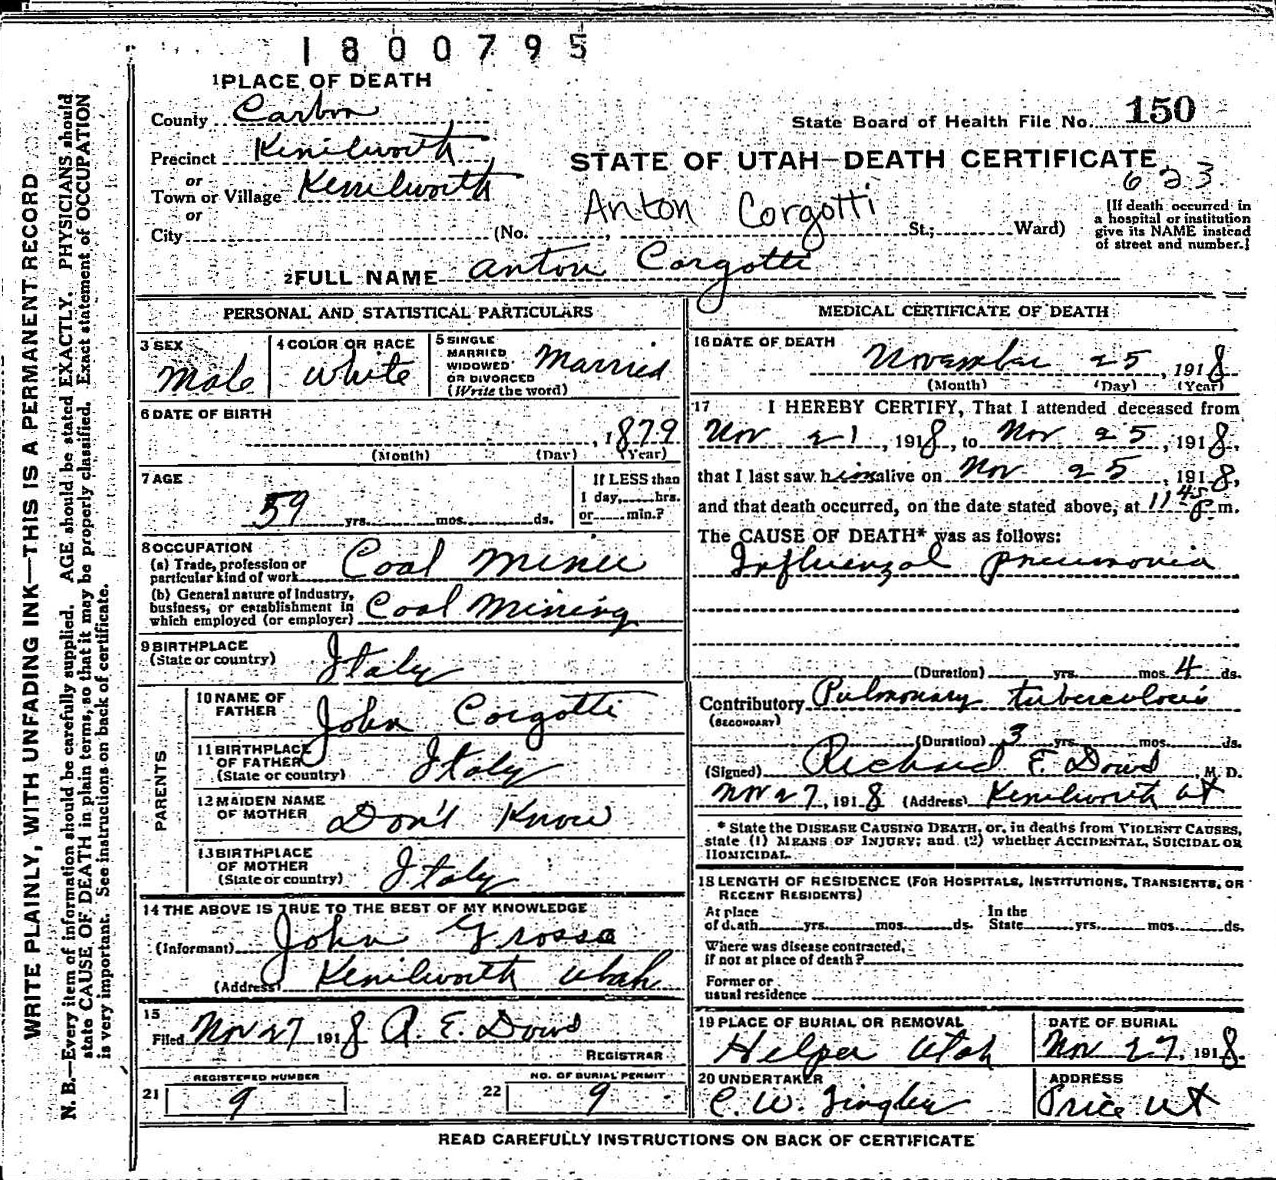 1800795
1 PLACE OF DEATH
County Carbon
State Board of Health File No. 150
Precinct Kenilworth
STATE OF UTAH—DEATH CERTIFICATE
623
or
Town or Village Kenilworth
or
Anton Corgotti
City (No. , St.; Ward)
[If death occurred in
a hospital or institution
give its NAME instead
of street and number.]
2 FULL NAME Anton Corgotti
WRITE PLAINLY, WITH UNFADING INK—THIS IS A PERMANENT RECORD
N. B.—Every item of information should be carefully supplied. AGE should be stated EXACTLY. PHYSICIANS should
state CAUSE OF DEATH in plain terms, so that it may be properly classified. Exact statement of OCCUPATION
is very important. See instructions on back of certificate.
PERSONAL AND STATISTICAL PARTICULARS
3 SEX
Male
4 COLOR OR RACE
White
5 SINGLE
MARRIED
WIDOWED
OR DIVORCED
(Write the word)
Married
6 DATE OF BIRTH
, 1879
(Month) (Day) (Year)
7 AGE
59 yrs. mos. ds.
If LESS than
1 day, hrs.
or min.?
8 OCCUPATION
(a) Trade, profession or
particular kind of work Coal Miner
(b) General nature of Industry,
business, or establishment in
which employed (or employer) Coal Mining
9 BIRTHPLACE
(State or country) Italy
PARENTS
10 NAME OF
FATHER John Corgotti
11 BIRTHPLACE
OF FATHER
(State or country) Italy
12 MAIDEN NAME
OF MOTHER Don't Know
13 BIRTHPLACE
OF MOTHER
(State or country) Italy
14 THE ABOVE IS TRUE TO THE BEST OF MY KNOWLEDGE
(Informant) John Grosso
(Address) Kenilworth Utah
15
Filed Nov 27 1918 R. E. Dowd
REGISTRAR
REGISTERED NUMBER
21 9
NO. OF BURIAL PERMIT
22 9
MEDICAL CERTIFICATE OF DEATH
16 DATE OF DEATH
November 25, 1918
(Month) (Day) (Year)
17 I HEREBY CERTIFY, That I attended deceased from
Nov 21, 1918, to Nov 25, 1918,
that I last saw him alive on Nov 25, 1918,
and that death occurred, on the date stated above, at 11 45 P. m.
The CAUSE OF DEATH* was as follows:
Influenzal pneumonia
(Duration) yrs. mos. 4 ds.
Contributory Pulmonary tuberculosis
(SECONDARY)
(Duration) 3 yrs. mos. ds.
(Signed) Richard E. Dowd M. D.
Nov 27, 1918 (Address) Kenilworth Ut
* State the DISEASE CAUSING DEATH, or, in deaths from VIOLENT CAUSES,
state (1) MEANS OF INJURY; and (2) whether ACCIDENTAL, SUICIDAL OR
HOMICIDAL.
18 LENGTH OF RESIDENCE (FOR HOSPITALS, INSTITUTIONS, TRANSIENTS, OR
RECENT RESIDENTS)
At place
of death yrs. mos. ds.
In the
State yrs. mos. ds.
Where was disease contracted,
if not at place of death?
Former or
usual residence
19 PLACE OF BURIAL OR REMOVAL
Helper Utah
DATE OF BURIAL
Nov 27, 1918.
20 UNDERTAKER
C. W.
ADDRESS
Price Ut
READ CAREFULLY INSTRUCTIONS ON BACK OF CERTIFICATE